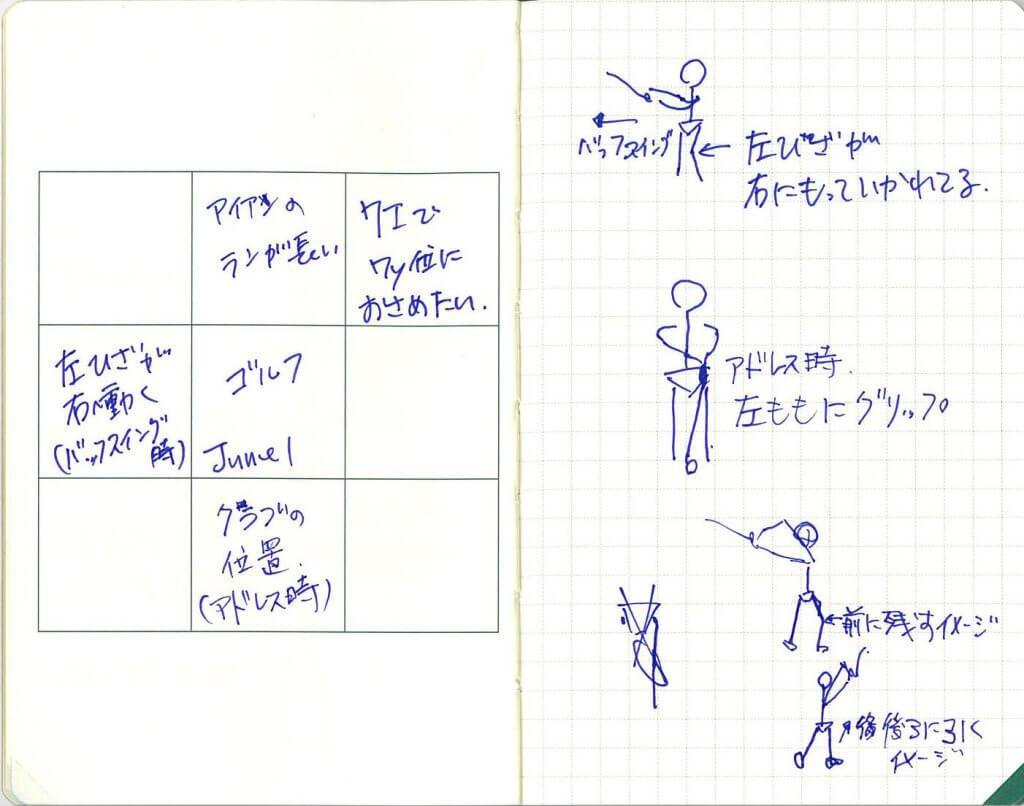 アイアンの
ランが長い
ウエで
ワッ位に
おさめたい.
左ひざが
右へ動く
(バックスイング
時)
ゴルフ
June 1
クラブの
位置.
(アドレス時)
バックスイング
左ひざが
右にもっていかれてる.
アドレス時.
左ももにグリップ。
前に残すイメージ
後ろに引く
イメージ